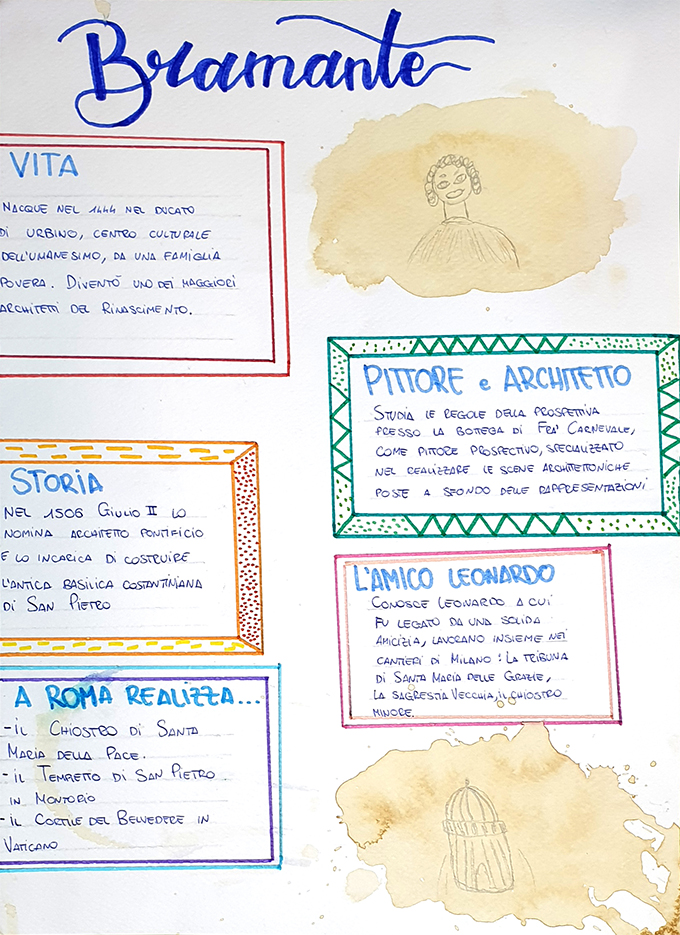 Bramante
VITA
NACQUE NEL 1444 NEL DUCATO
DI URBINO, CENTRO CULTURALE
DELL'UMANESIMO, DA UNA FAMIGLIA
POVERA. DIVENTÒ UNO DEI MAGGIORI
ARCHITETTI DEL RINASCIMENTO.
PITTORE e ARCHITETTO
STUDIA LE REGOLE DELLA PROSPETTIVA
PRESSO LA BOTTEGA DI FRA' CARNEVALE,
COME PITTORE PROSPETTIVO, SPECIALIZZATO
NEL REALIZZARE LE SCENE ARCHITETTONICHE
POSTE A SFONDO DELLE RAPPRESENTAZIONI
STORIA
NEL 1506 GIULIO II LO
NOMINA ARCHITETTO PONTIFICIO
E LO INCARICA DI COSTRUIRE
L'ANTICA BASILICA COSTANTINIANA
DI SAN PIETRO
L'AMICO LEONARDO
CONOSCE LEONARDO A CUI
FU LEGATO DA UNA SOLIDA
AMICIZIA, LAVORANO INSIEME NEI
CANTIERI DI MILANO: LA TRIBUNA
DI SANTA MARIA DELLE GRAZIE,
LA SAGRESTIA VECCHIA, IL CHIOSTRO
MINORE.
A ROMA REALIZZA...
- IL CHIOSTRO DI SANTA
MARIA DELLA PACE.
- IL TEMPIETTO DI SAN PIETRO
IN MONTORIO
- IL CORTILE DEL BELVEDERE IN
VATICANO